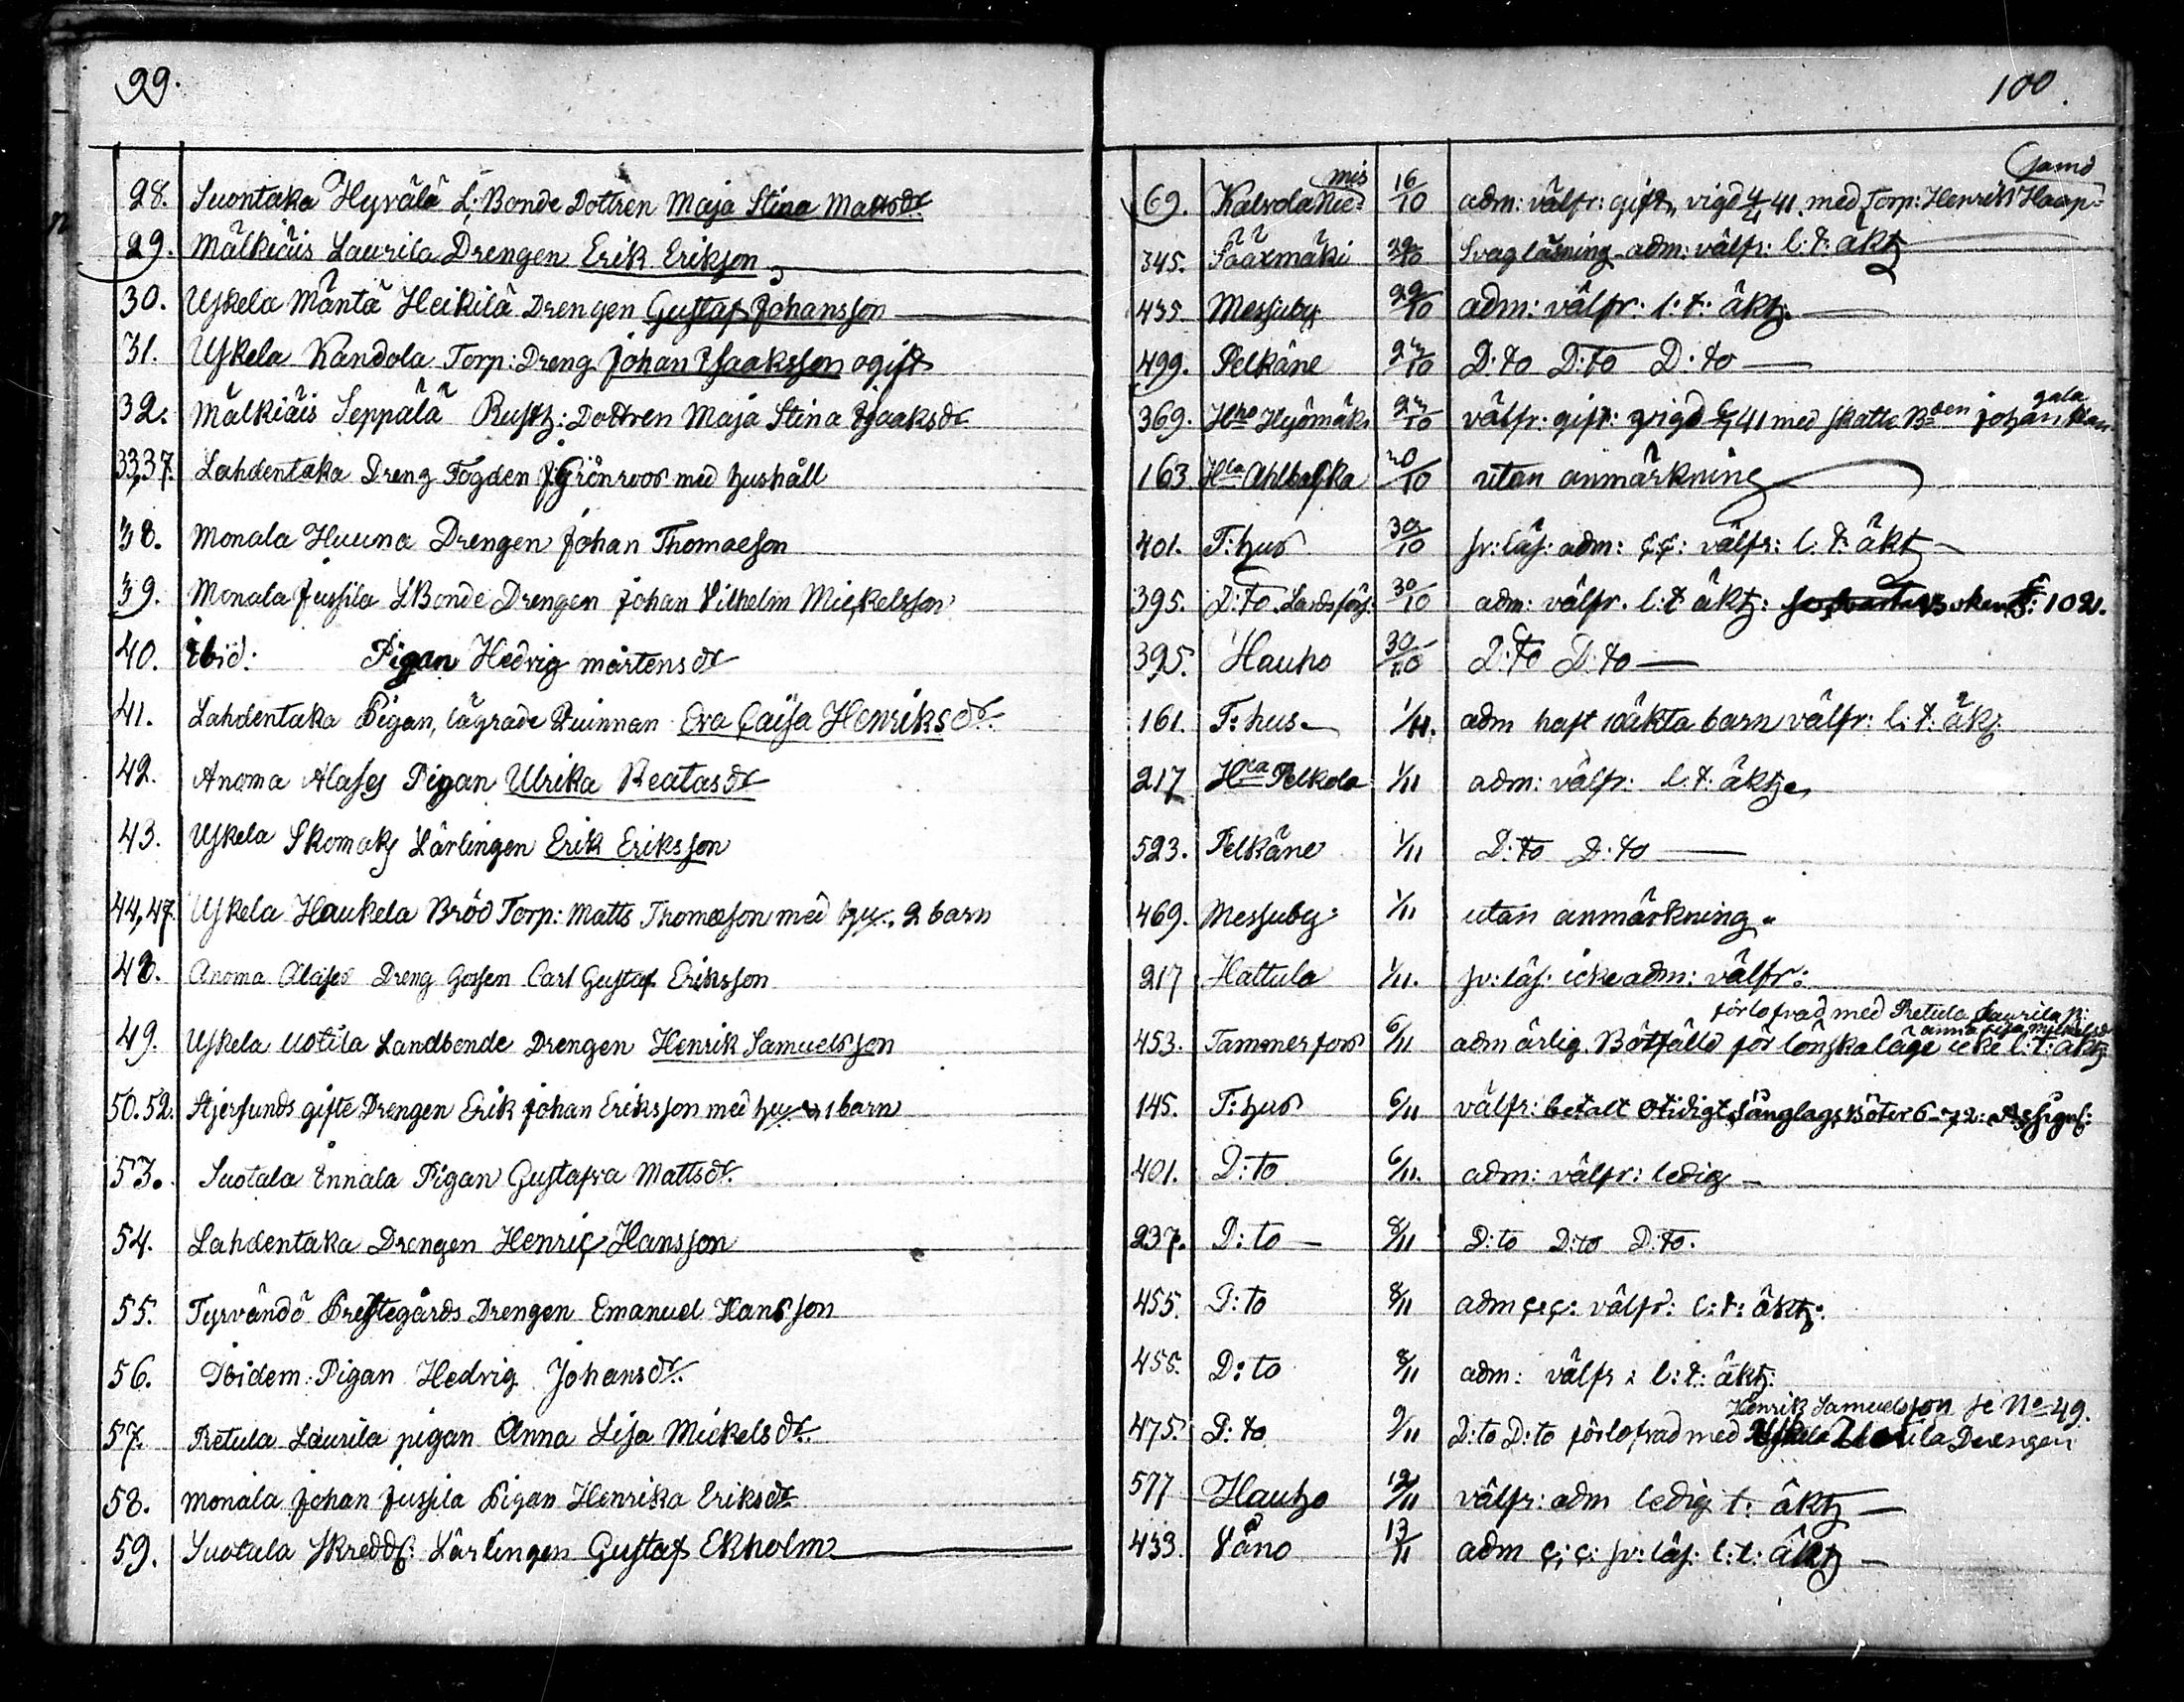 99.
28. Suontaka Hyvälä L: Bonde Dottren Maja Stina Mattsdr
29. Mälkiäis Laurila Drengen Erik Erikson
30. Uskela Mäntä Heikilä Drengen Gustaf Johansson
31. Uskela Kandola Torp: Dreng Johan Isaaksson ogift
32. Mälkiäis Seppälä Rusth: Dottren Maja Stina Isaaksdr
33,37. Lahdentaka Dreng Fogden Grönroos med hushåll
38. Monala Huuna Drengen Johan Thomaeson
39. Monala Jussila LBonde Drengen Johan Vilhelm Mickelsson
40. Ibid: Pigan Hedvig Mårtensdr
41. Lahdentaka Pigan, lägrade Quinnan Eva Caisa Henriksdr
42. Anoma Alases Pigan Ulrika Beatasdr
43. Uskela Skomak Lärlingen Erik Eriksson
44,47. Uskela Haukela Bröd Torp: Matts Thomæson med hu. 2 barn
48. Anoma Alases Dreng Gossen Carl Gustaf Eriksson
49. Uskela Uotila Landbonde Drengen Henrik Samuelsson
50.52. Stjersunds gifte Drengen Erik Johan Eriksson med hu 1 barn
53. Suotala Ennala Pigan Gustafva Mattsdr.
54. Lahdentaka Drengen Henric Hansson
55. Tyrvändö Prestegårds Drengen Emanuel Hansson
56. Ibidem: Pigan Hedvig Johansdr.
57. Retula Laurila pigan Anna Lisa Mickelsdr.
58. Monala Johan Jussila Pigan Henrika Eriksdr
59. Suotala Skredd: Lärlingen Gustaf Ekholm
100.
jamo
mis
69. Kalvola Nie= 16/10 adm: välfr: gift, vigd 4/4 41. med Torp: Henrik Haap=
345. Sääxmäki 22/10 Svag läsning adm: välfr: l: t: äkt
435. Messuby 22/10 adm: välfr: l: t: äkt.
499. Pelkäne 23/10 D:to D:to D:to
gala
369. Hho Hyömäki 23/10 välfr: gift: vigd 41 med Skatte Bden Johan Kan=
163 Hla Ahlbacka 30/10 utan anmärkning
401. T:hus 30/10 sv: läs: adm: c,c: välfr: l. t: äkt
395. D:to Landsförs: 30/10 adm: välfr. l: t äkt: 102.
395. Hauho 30/10 D:to D:to
161. T:hus 1/11. adm haft oäkta barn välfr: l: t: äk
217 Hla Pelkola 1/11 adm: välfr: l. t: äkt
523. Pelkäne 1/11 D:to D:to
469. Messuby 1/11 utan anmärkning
217 Hattula 1/11. sv: läs: icke adm: välfr:
förlofvad med Retula Laurila p:
anna Lisa Mickelsdr
453. Tammerfors 6/11 adm ärlig. Bötfälld för lönskaläge icke l: t: äkt
145. T:hus 6/11 välfr: betalt otidigt Sänglags Böter 6-72: Assign:
401. D:to 6/11. adm: välfr: ledig
237. D:to 8/11 D:to D:to D:to.
455. D:to 8/11 adm c,c: välfr: l: t: äkt:
455. D:to 8/11 adm: välfr: l: t: äkt:
Henrik Samuelsson se No 49.
475. D:to 9/11 D:to D:to förlofvad med Uskela Uotila Drengen
577 Hauho 12/11 välfr: adm ledig t: äkt
433. Våno 13/11 adm c,c: sv: läs: l: t: äkt